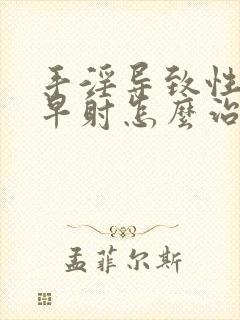 手淫导致性
早射怎麽治
孟菲尔斯